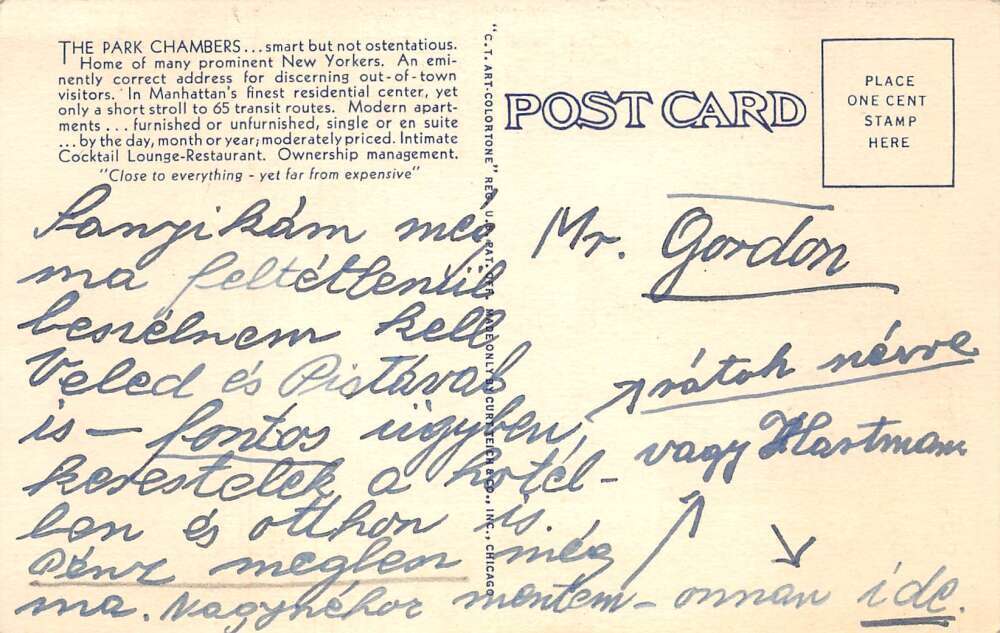 THE PARK CHAMBERS...smart but not ostentatious.
Home of many prominent New Yorkers. An emi-
nently correct address for discerning out-of-town
visitors. In Manhattan's finest residential center, yet
only a short stroll to 65 transit routes. Modern apart-
ments ... furnished or unfurnished, single or en suite
... by the day, month or year; moderately priced. Intimate
Cocktail Lounge-Restaurant. Ownership management.
"Close to everything - yet far from expensive"
"C.T. ART-COLORTONE" REG. U.S. PAT. OFF. MADE ONLY BY CURT TEICH & CO., INC., CHICAGO
POST CARD
PLACE
ONE CENT
STAMP
HERE
Sanyikám még
ma feltétlenül
beszélnem kell
Veled és Pistával
is — fontos ügyben,
kerestelek a hotel-
ben és otthon is.
Pénz meglesz még
ma. Nagynéhoz mentem – onnan ide.
Mr. Gordon
rátok névre
vagy Hartmann